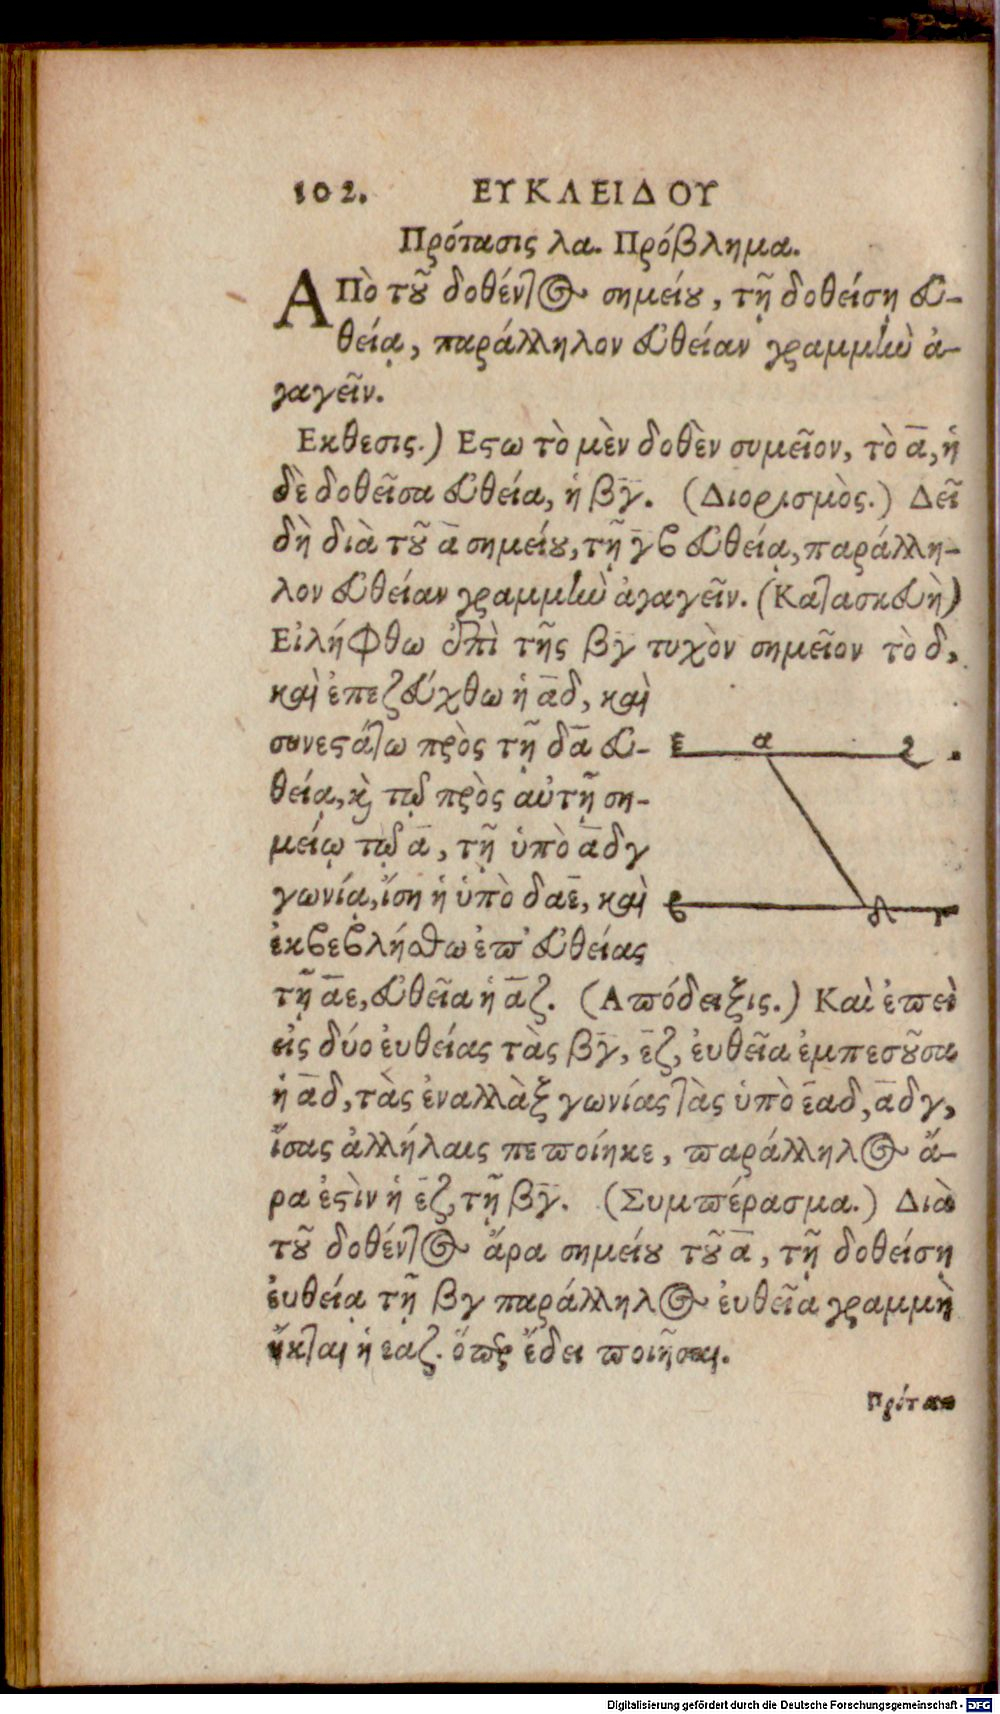 102. ΕΥΚΛΕΙΔΟΥ
Πρότασις λα. Πρόβλημα.
ΑΠὸ τοῦ δοθέντος σημείου, τῇ δοθείσῃ εὐ-
θείᾳ, παράλληλον εὐθείαν γραμμὴν ἀ-
γαγεῖν.
Εκθεσις.) Εστω τὸ μὲν δοθὲν συμεῖον, τὸ α̅, ἡ
δὲ δοθεῖσα εὐθεία, ἡ βγ̅. (Διορισμὸς.) Δεῖ
δὴ διὰ τοῦ α̅ σημείου, τῇ γ̅β εὐθείᾳ, παράλλη-
λον εὐθείαν γραμμὴν ἀγαγεῖν. (Κατασκευὴ)
Εἰλήφθω ἐπὶ τῆς βγ̅ τυχὸν σημεῖον τὸ δ,
καὶ ἐπεζεύχθω ἡ α̅δ, καὶ
συνεστάτω πρὸς τῇ δα̅ εὐ-
θείᾳ, καὶ τῷ πρὸς αὐτῇ ση-
μείῳ τῷ α̅, τῇ ὑπὸ α̅δγ
γωνίᾳ, ἴση ἡ ὑπὸ δαε̅, καὶ
ἐκβεβλήσθω ἐπ' εὐθείας
τῇ α̅ε, εὐθεῖα ἡ α̅ζ. (Απόδειξις.) Καὶ ἐπεὶ
εἰς δύο ἐυθείας τὰς βγ̅, ε̅ζ, ἐυθεῖα ἐμπεσοῦσα
ἡ α̅δ, τὰς ἐναλλὰξ γωνίας τὰς ὑπὸ ε̅αδ, α̅δγ,
ἴσας ἀλλήλαις πεποίηκε, παράλληλος ἄ-
ρα ἐστὶν ἡ ε̅ζ, τῇ βγ̅. (Συμπέρασμα.) Διὰ
τοῦ δοθέντος ἄρα σημείου τοῦ α̅, τῇ δοθείσῃ
ἐυθείᾳ τῇ βγ παράλληλος ἐυθεῖα γραμμὴ
ἤκται ἡ εαζ. ὅπερ ἔδει ποιῆσαι.
Πρότασ
ε α ζ
β δ γ
Digitalisierung gefördert durch die Deutsche Forschungsgemeinschaft - DFG